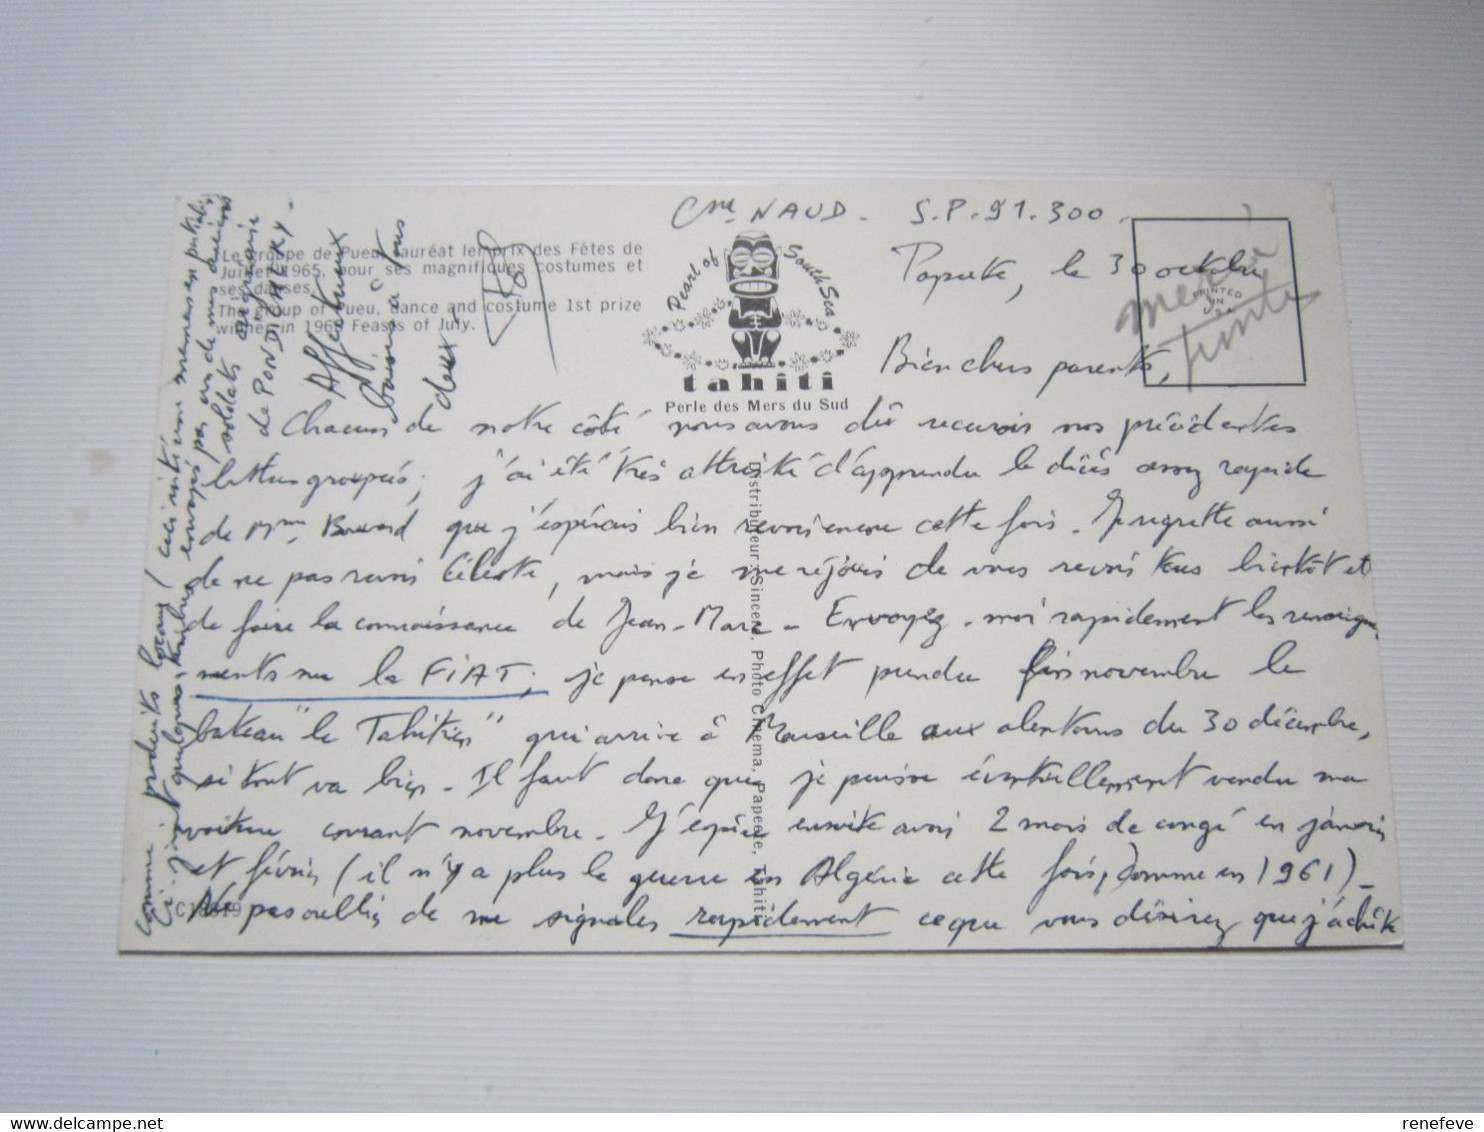 Cne NAUD - S.P. 91.300 -
Papeete, le 30 octobre
Bien chers parents,
Chacun de notre côté nous avons dû recevoir nos précédentes
lettres groupées; j'ai été très attristé d'apprendre le décès assez rapide
de Mme que j'espérais bien revoir encore cette fois. Je regrette aussi
de ne pas revoir Céleste, mais je me réjouis de vous revoir tous bientôt et
de faire la connaissance de Jean-Marc - Envoyez-moi rapidement les renseigne
ments sur la FIAT; je pense en effet prendre fin novembre le
bateau "le Tahitien" qui arrive à Marseille aux alentours du 30 décembre,
si tout va bien - Il faut donc que je puisse éventuellement vendre ma
voiture courant novembre - J'espère ensuite avoir 2 mois de congé en janvier
et février (il n'y a plus la guerre en Algérie cette fois, comme en 1961) -
Ne pas oublier de me signaler rapidement ce que vous désirez que j'achète
comme produits locaux (
Ci-joint quelques timbres envoyés par un de mes anciens
soldats originaire
de PONDICHERY -
Affectueux
baisers à tous
deux -
Le groupe de Pueu, lauréat 1er prix des Fêtes de
Juillet 1965, pour ses magnifiques costumes et
ses danses.
The group of Pueu, dance and costume 1st prize
winner in 1965 Feasts of July.
Pearl of South Sea
tahiti
Perle des Mers du Sud
PRINTED
IN
U.S.A.
Distributeur: Sincère, Photo Cinéma, Papeete, Tahiti
renefeve